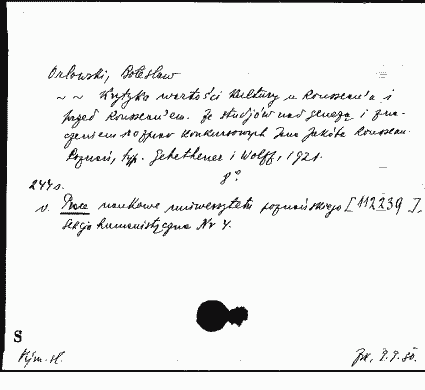 Orłowski, Bolesław
~ ~ Krytyka wartości kultury u Rousseau'a i
przed Rousseau'em. Ze studjów nad genezą i zna-
czeniem rozpraw konkursowych Jana Jakóba Rousseau.
Poznań, typ. Gebethner i Wolff, 1921.
8°
244 s.
v. Prace naukowe uniwersytetu poznańskiego [112239],
Sekcja humanistyczna Nr 4.
S